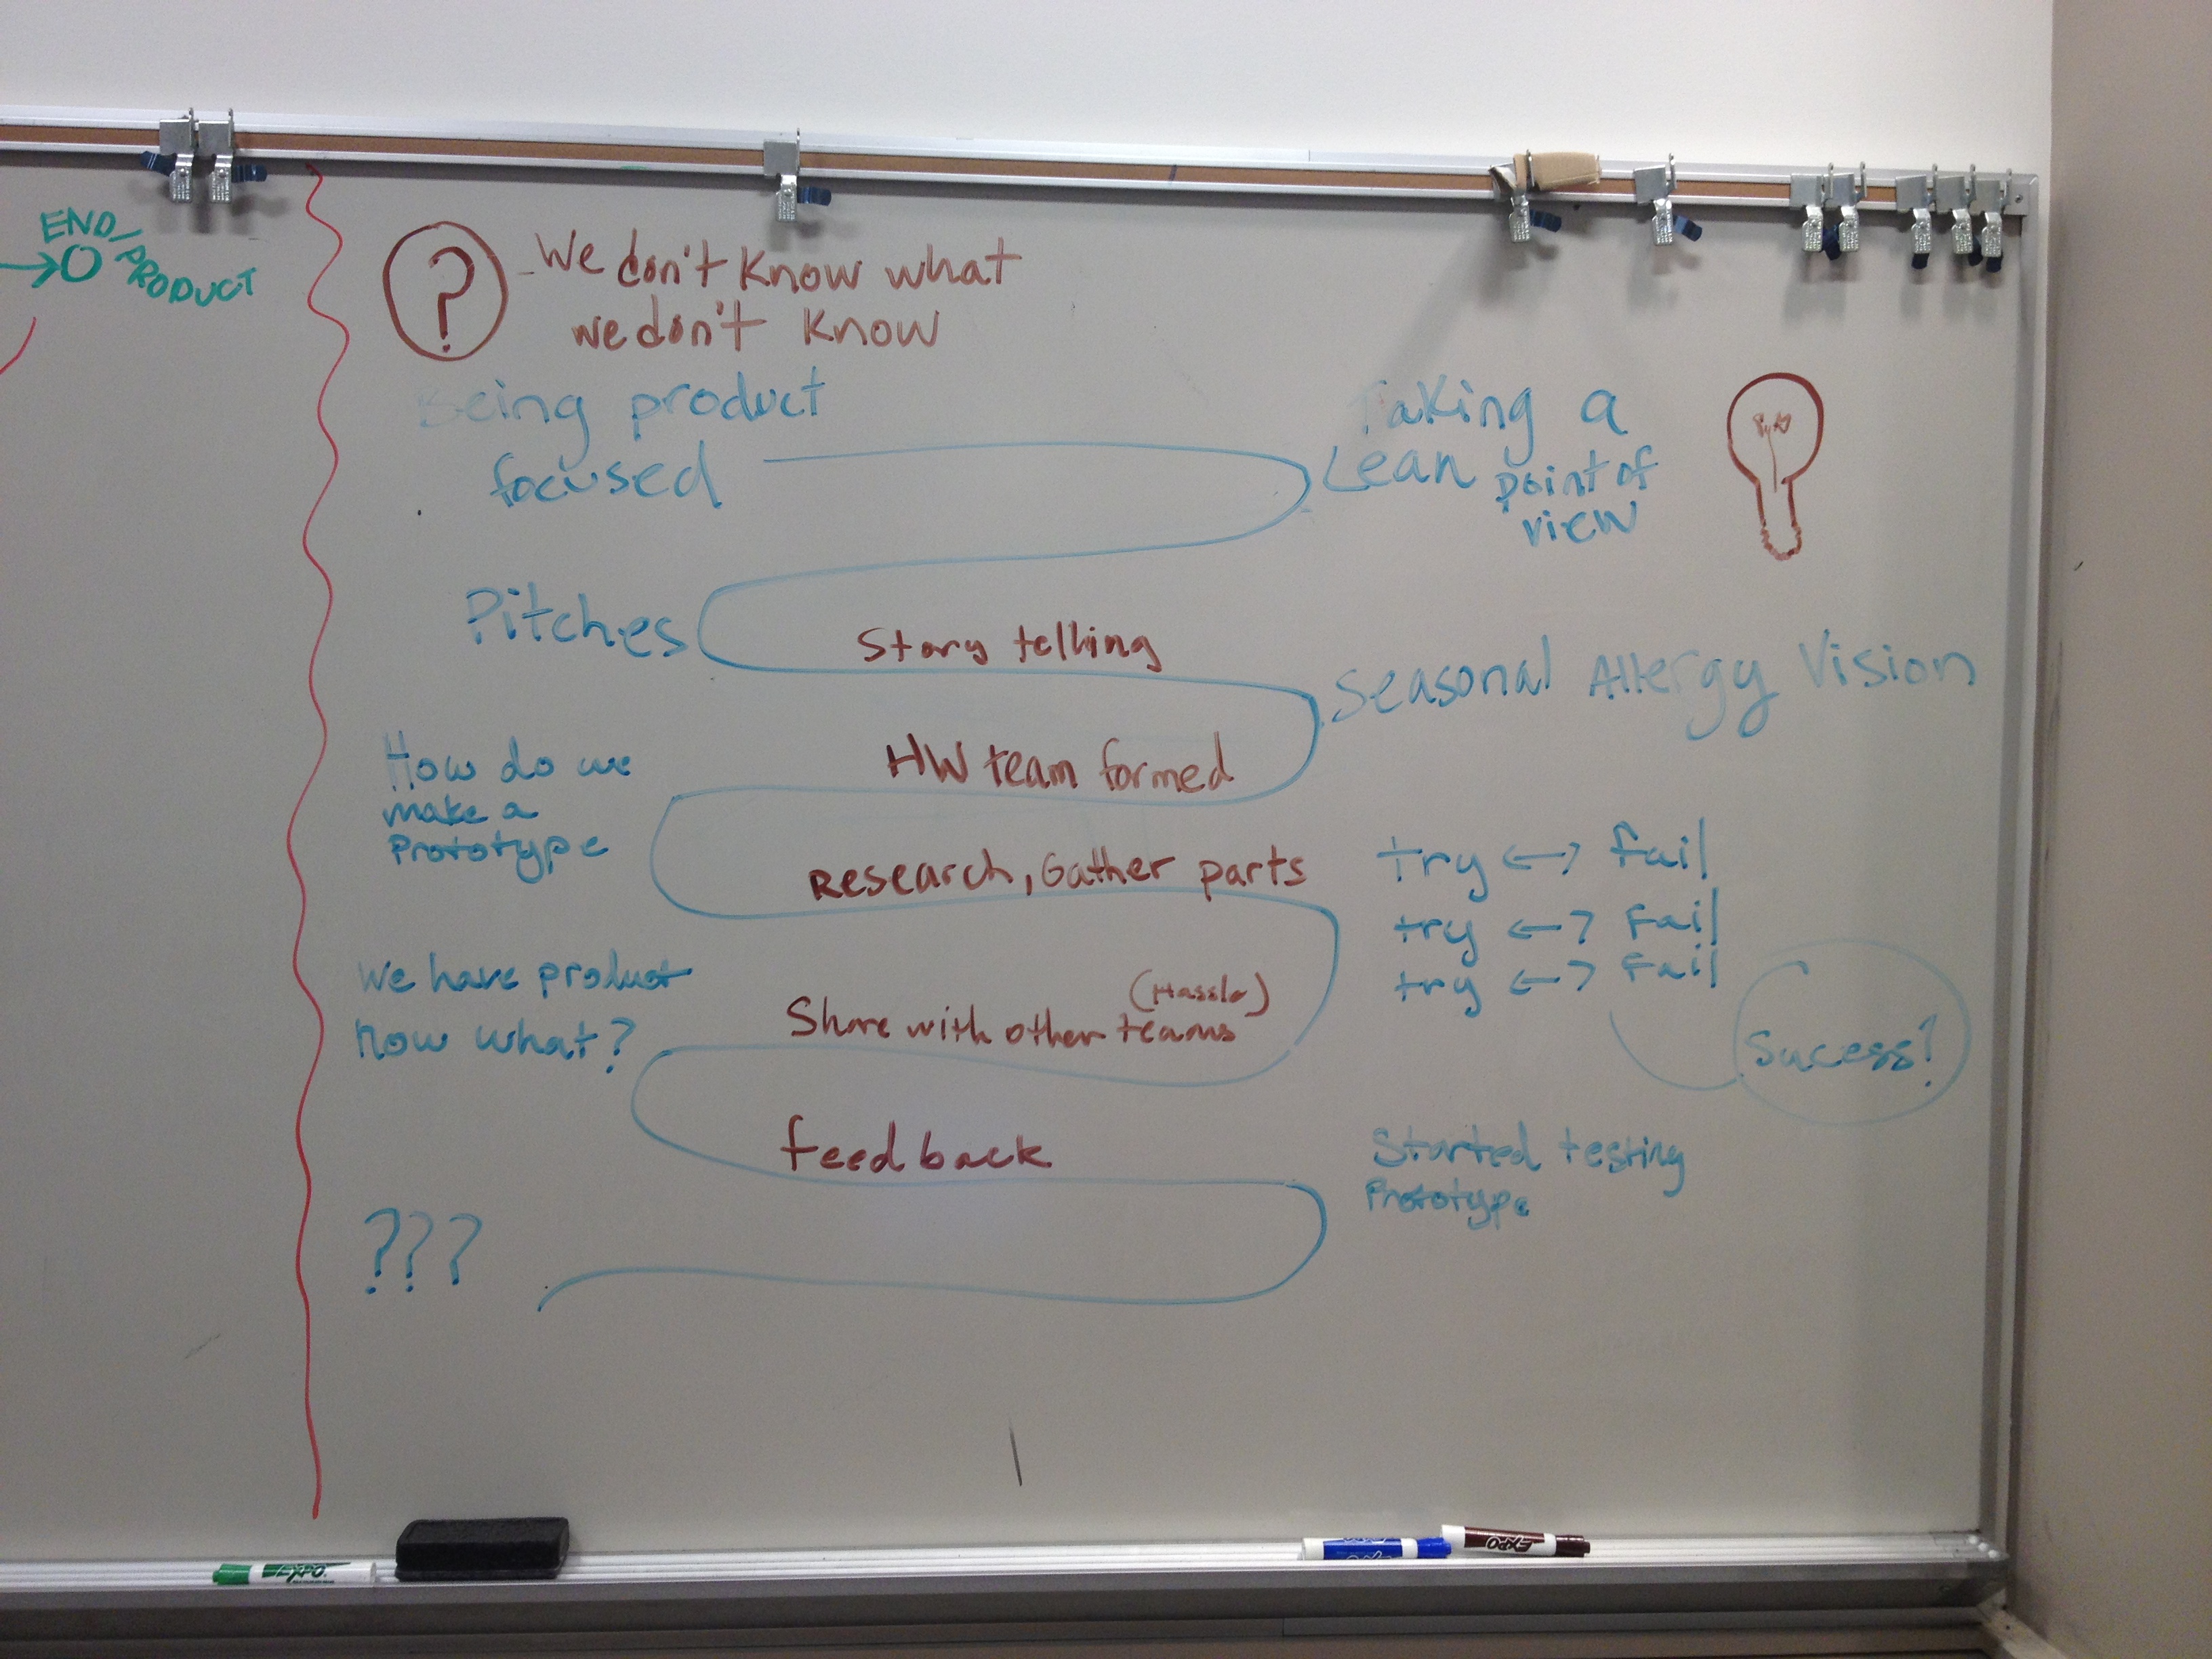 END/PRODUCT
?
We don't know what
we don't know
Being product
focused
Taking a
Lean point of
view
Pitches
Story telling
Seasonal Allergy Vision
How do we
make a
Prototype
HW team formed
Research, Gather parts
try <-> fail
try <-> fail
try <-> fail
We have product
now what?
(Hassle)
Share with other teams
Sucess?
feedback
Started testing
Prototype
???
EXPO
EXPO
EXPO